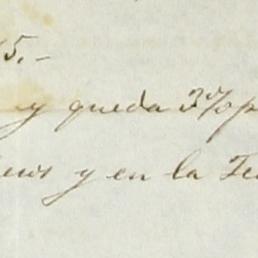 5.-
y queda 3% p
y en la Te